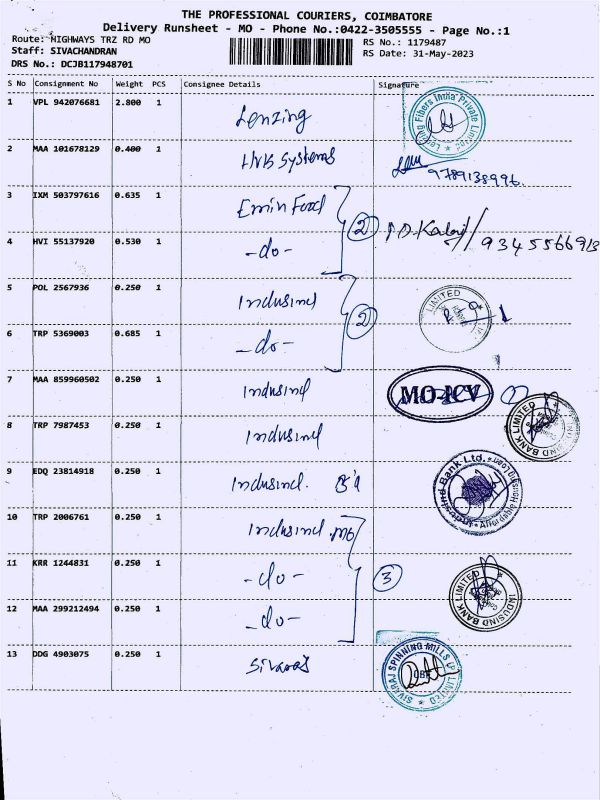 THE PROFESSIONAL COURIERS, COIMBATORE
Delivery Runsheet - MO - Phone No.:0422-3505555 - Page No.:1
Route: HIGHWAYS TRZ RD MO
RS No.: 1179487
Staff: SIVACHANDRAN
RS Date: 31-May-2023
DRS No.: DCJB117948701
S No Consignment No Weight PCS Consignee Details Signature
1 VPL 942076681 2.800 1 Lenzing
Lenzing Fibers India Private Limited
2 MAA 101678129 0.400 1 HVB Systems
9789138996
3 IXM 503797616 0.635 1 Emin Food
2
9345566913
4 HVI 55137920 0.530 1 -do-
5 POL 2567936 0.250 1 Indusind
2
LIMITED
6 TRP 5369003 0.685 1 -do-
7 MAA 859960502 0.250 1 Indusind
MO-ICV
8 TRP 7987453 0.250 1 Indusind
INDUSIND BANK LIMITED
9 EDQ 23814918 0.250 1 Indusind.
10 TRP 2006761 0.250 1 Indusind MO
11 KRR 1244831 0.250 1 -do-
3
INDUSIND BANK LIMITED
12 MAA 299212494 0.250 1 -do-
13 DDG 4903075 0.250 1 Sivaraj
SIVARAJ SPINNING MILLS (P) LIMITED